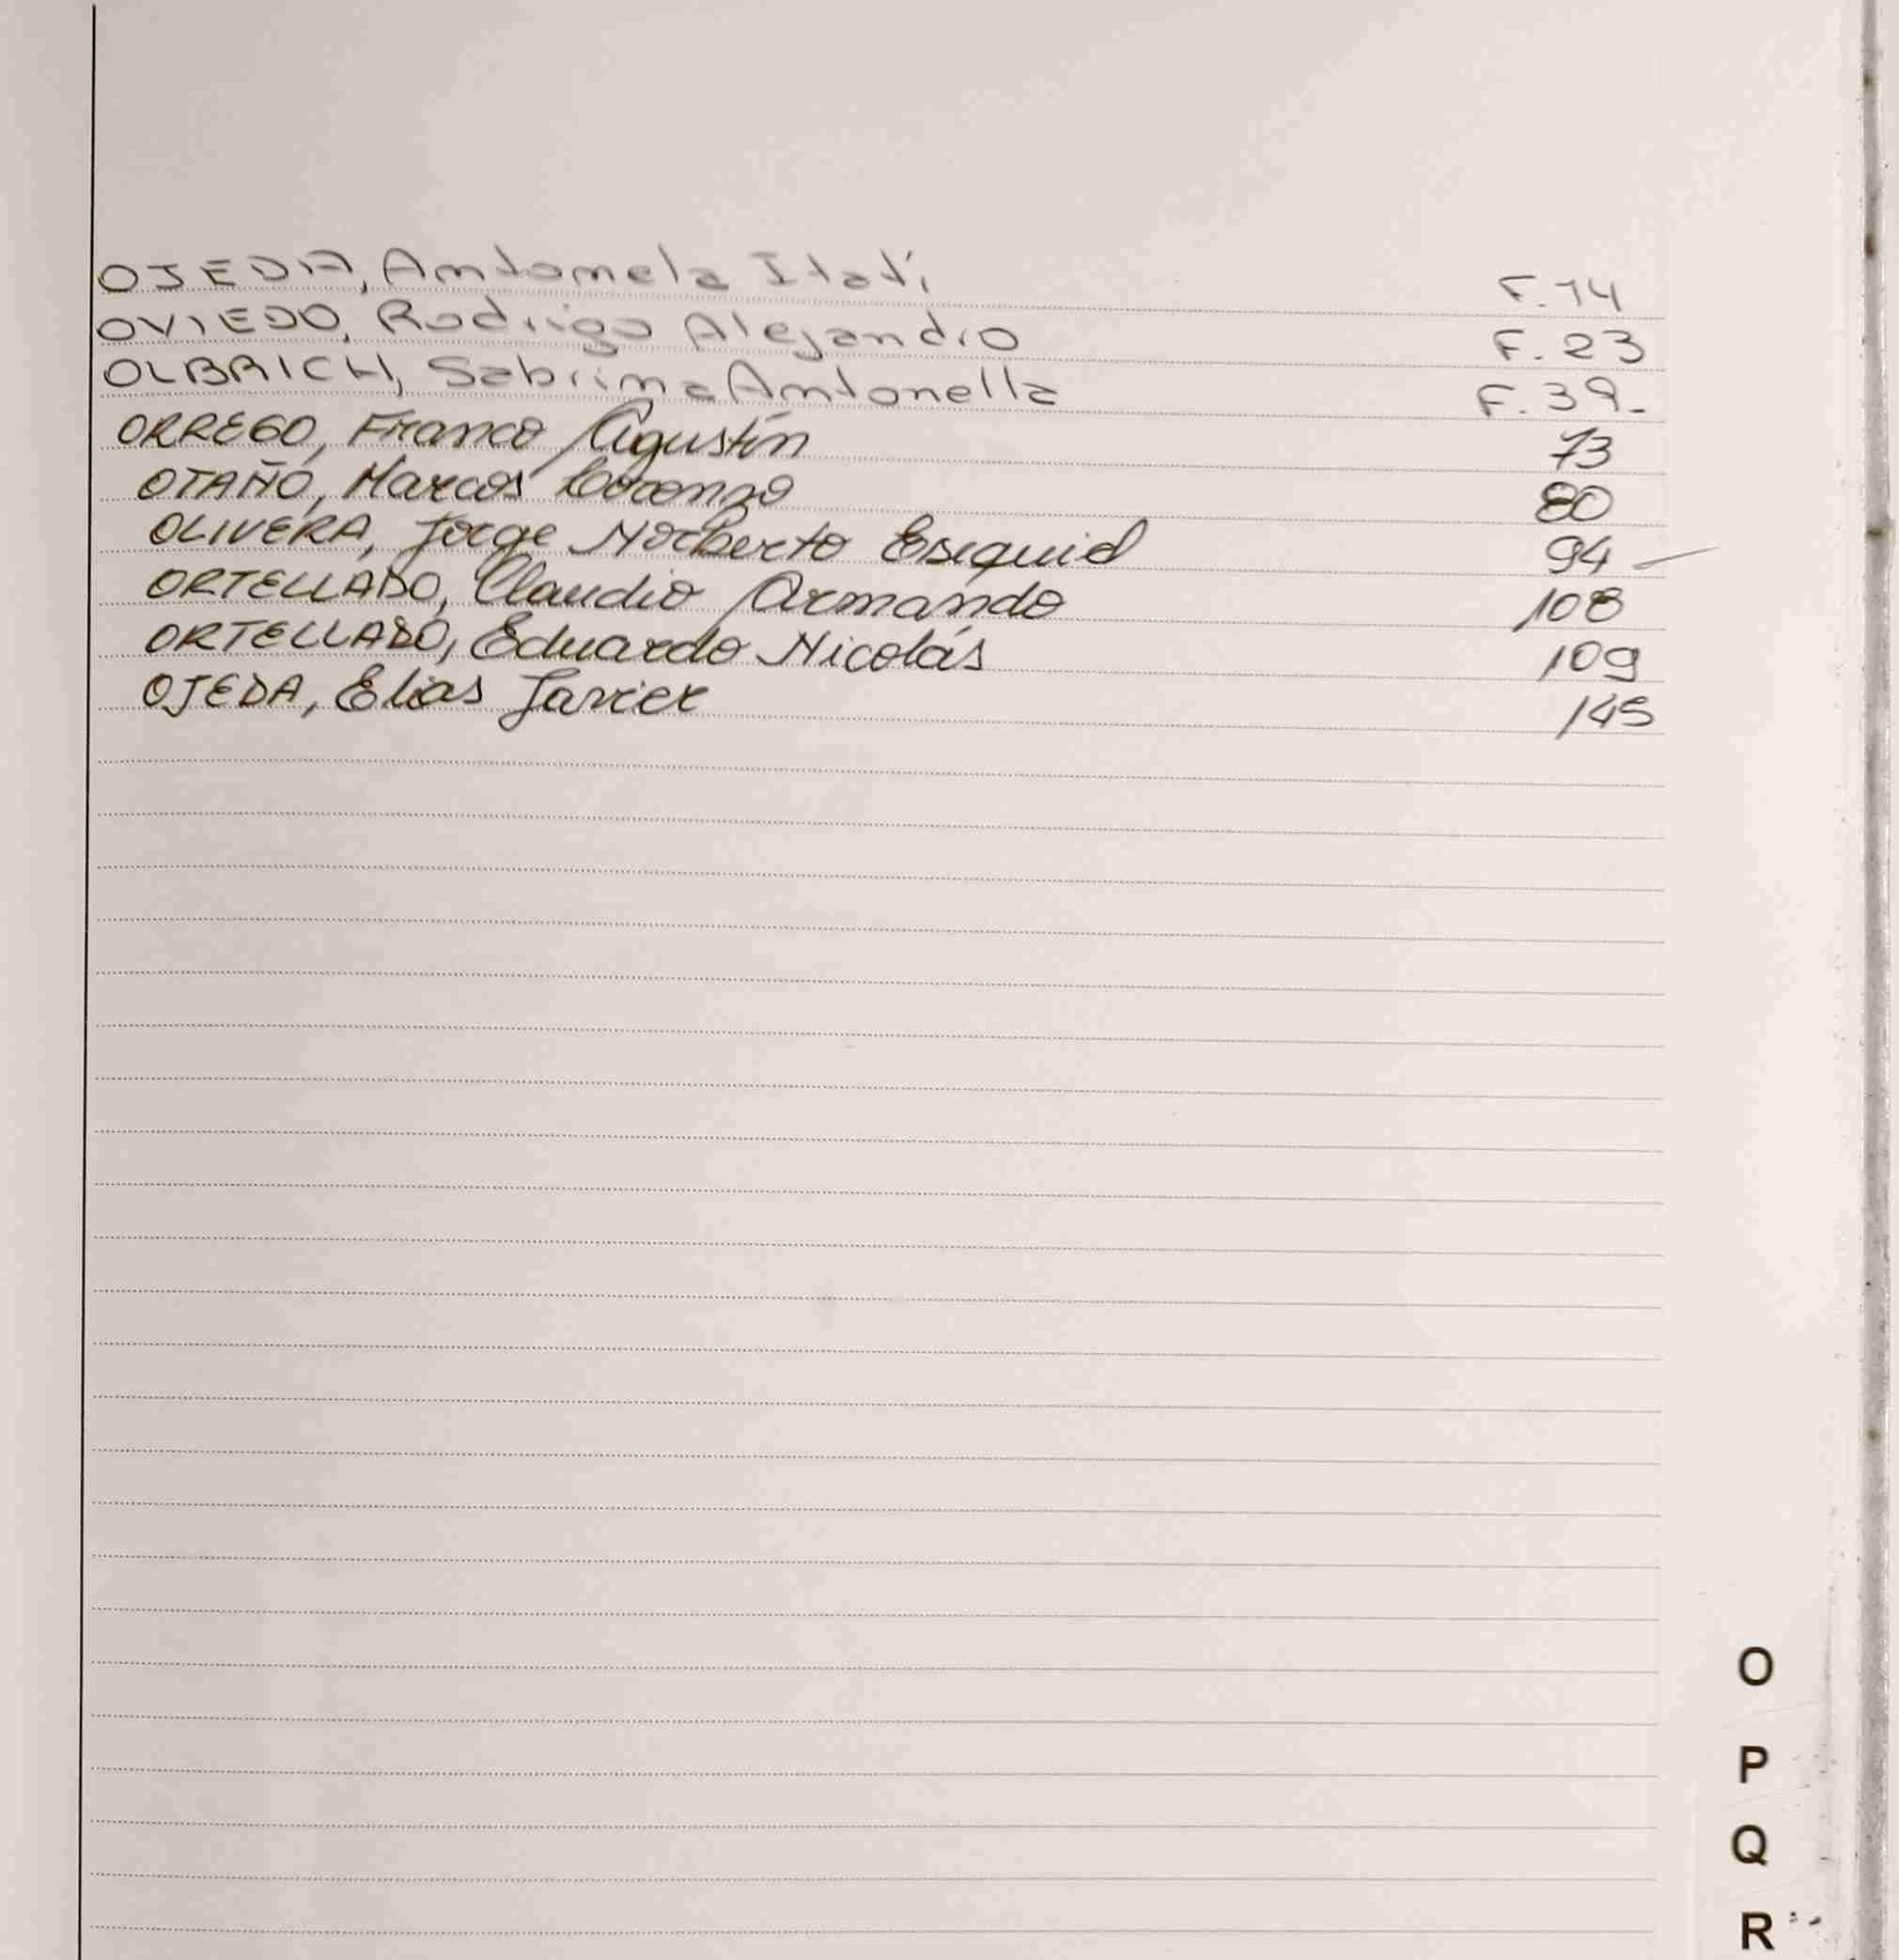 OJEDA, Antonela Itatí F.14
OVIEDO, Rodrigo Alejandro F.23
OLBRICH, Sabrina Antonella F.39-
ORREGO, Franco Agustín 73
OTAÑO, Marcos Lorenzo 80
OLIVERA, Jorge Norberto Esequiel 94
ORTELLADO, Claudio Armando 108
ORTELLADO, Eduardo Nicolás 109
OJEDA, Elias Javier 145
O
P
Q
R